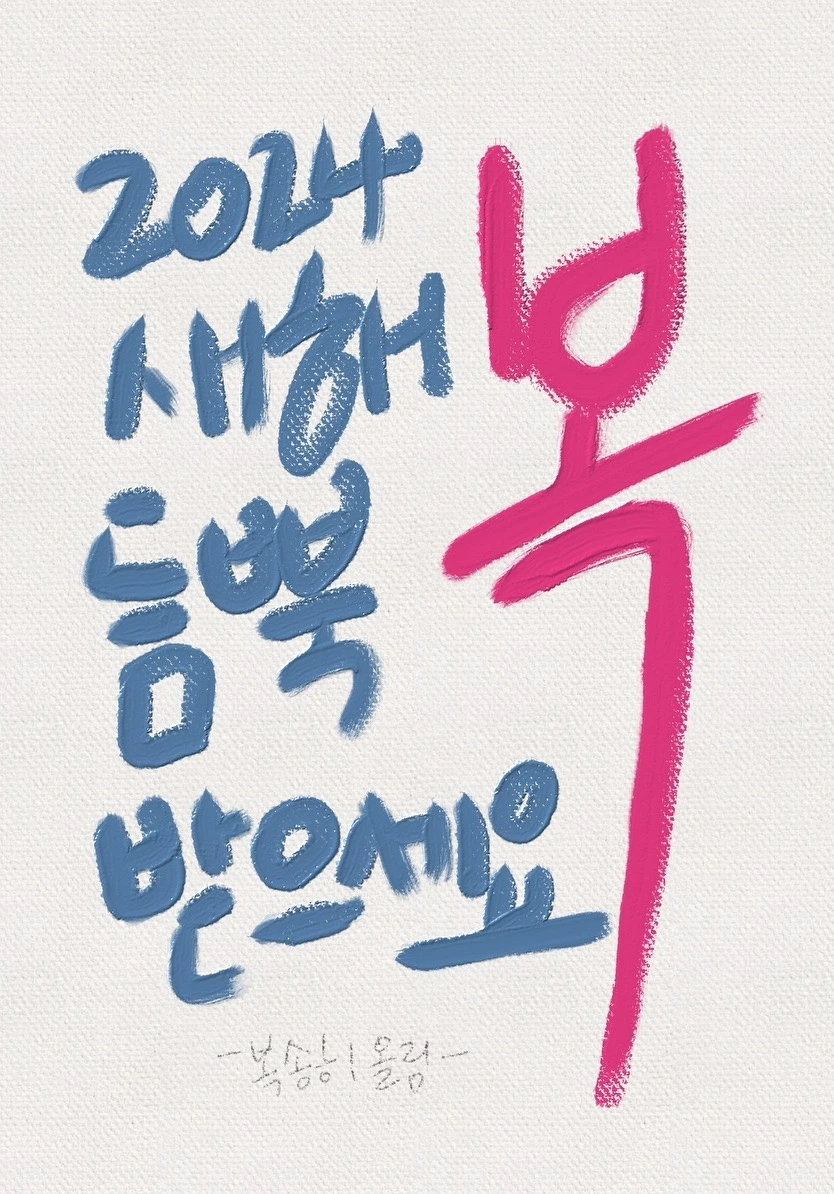 2024
새해
복
듬뿍
받으세요
-복송이 올림-